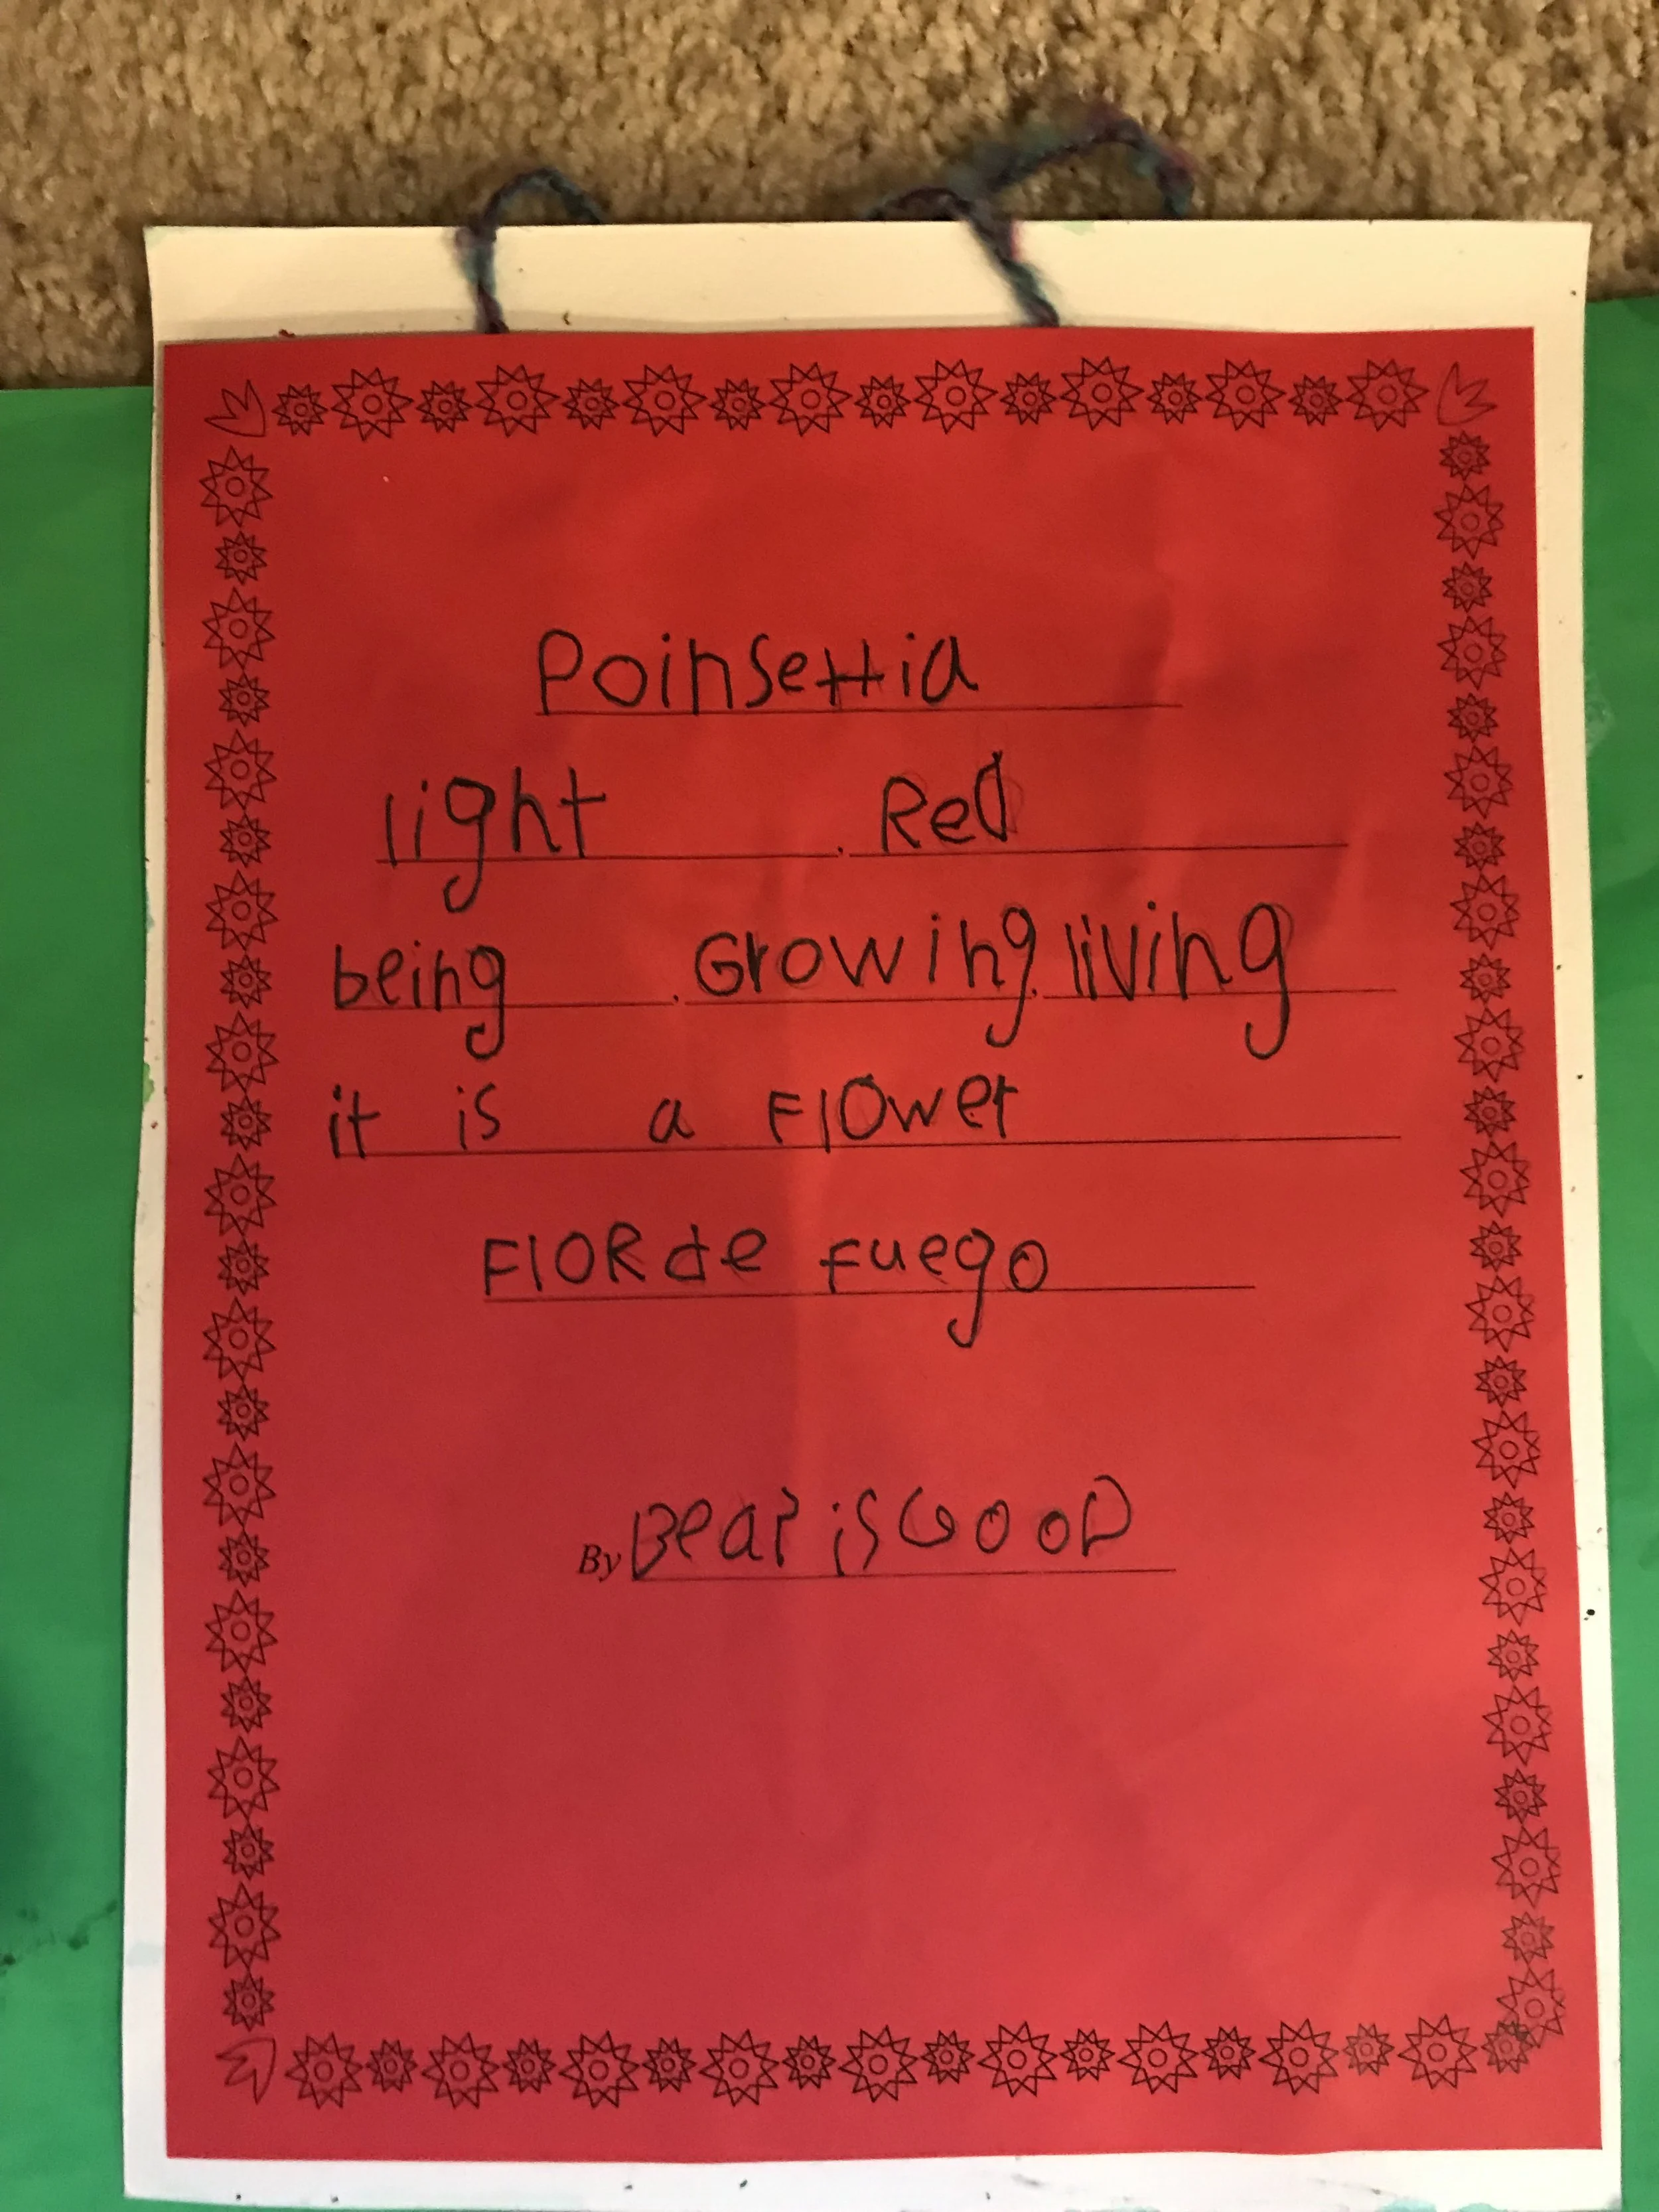 Poinsettia
light, Red
being, Growing, living
it is a Flower
FlOR de fuego
By Bear is GOOD